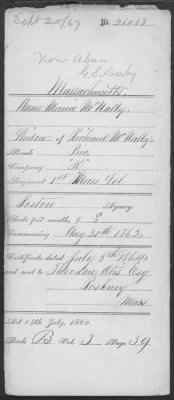 Sept 20/67 No. 26013
Now Aban
G.S. Derby
Massachusetts
Anne Maria McNally
Widow of Richard McNally
Rank Priv
Company "K"
Regiment 1st Mass Vol
Boston Agency.
Rate per month, $ 8
Commencing Aug 30th 1862
Certificate dated July 5th 1864
and sent to Theodore Otis Esq
Roxbury
Mass
Act 14th July, 1862.
Book B Vol. 3 Page 39